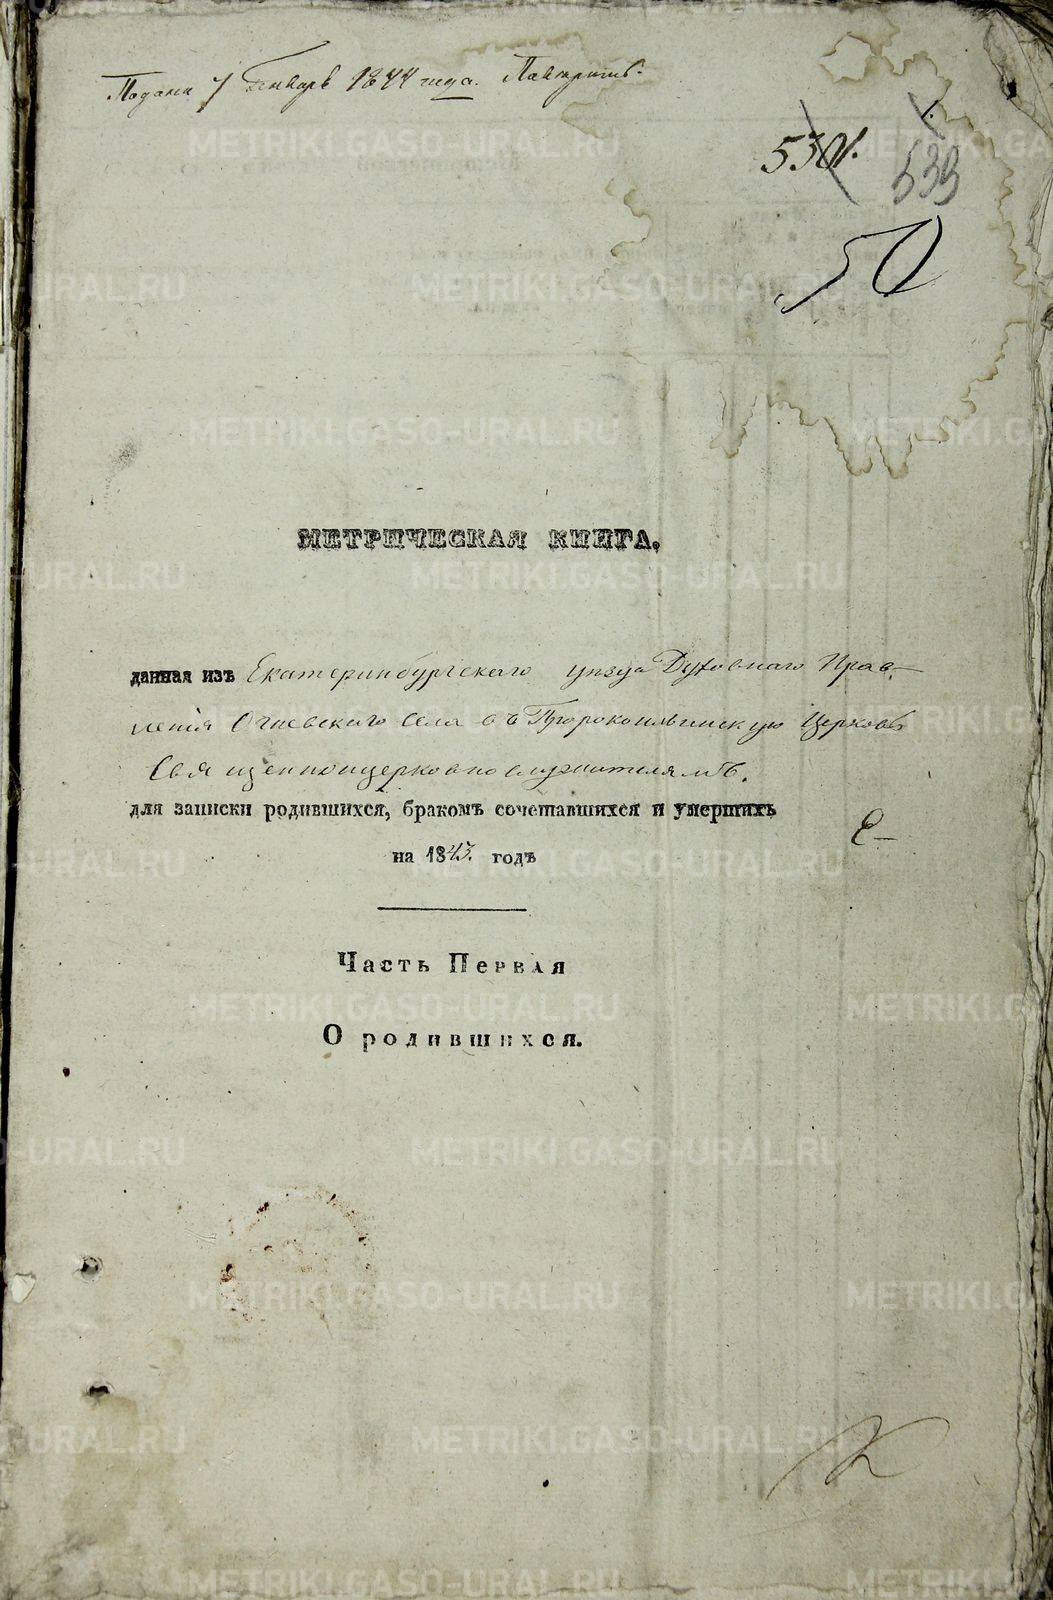 Подана 7 Генварь 1844 года.
530.
539
50
МЕТРИЧЕСКАЯ КНИГА,
данная изъ Екатеринбургскаго уезда Духовнаго Прав-
ленія Огневскаго села въ Пророкоильинскую Церковь
Священноцерковнослужителямъ.
для записки родившихся, бракомъ сочетавшихся и умершихъ
на 1843. годъ
Часть Первая
О родившихся.
METRIKI.GASO-URAL.RU